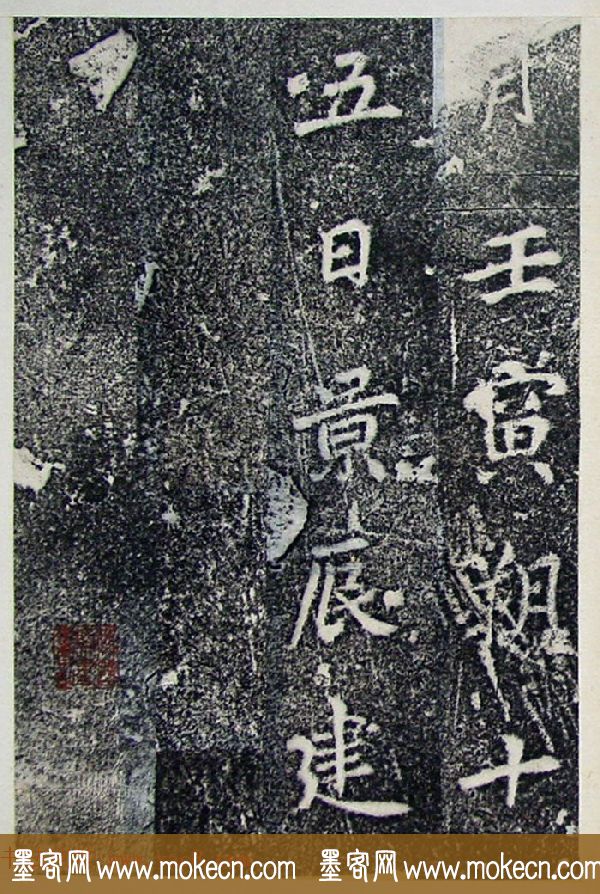 月壬寅朔十
五日景辰建
墨客网 www.mokecn.com 墨客网 www.mokecn.com